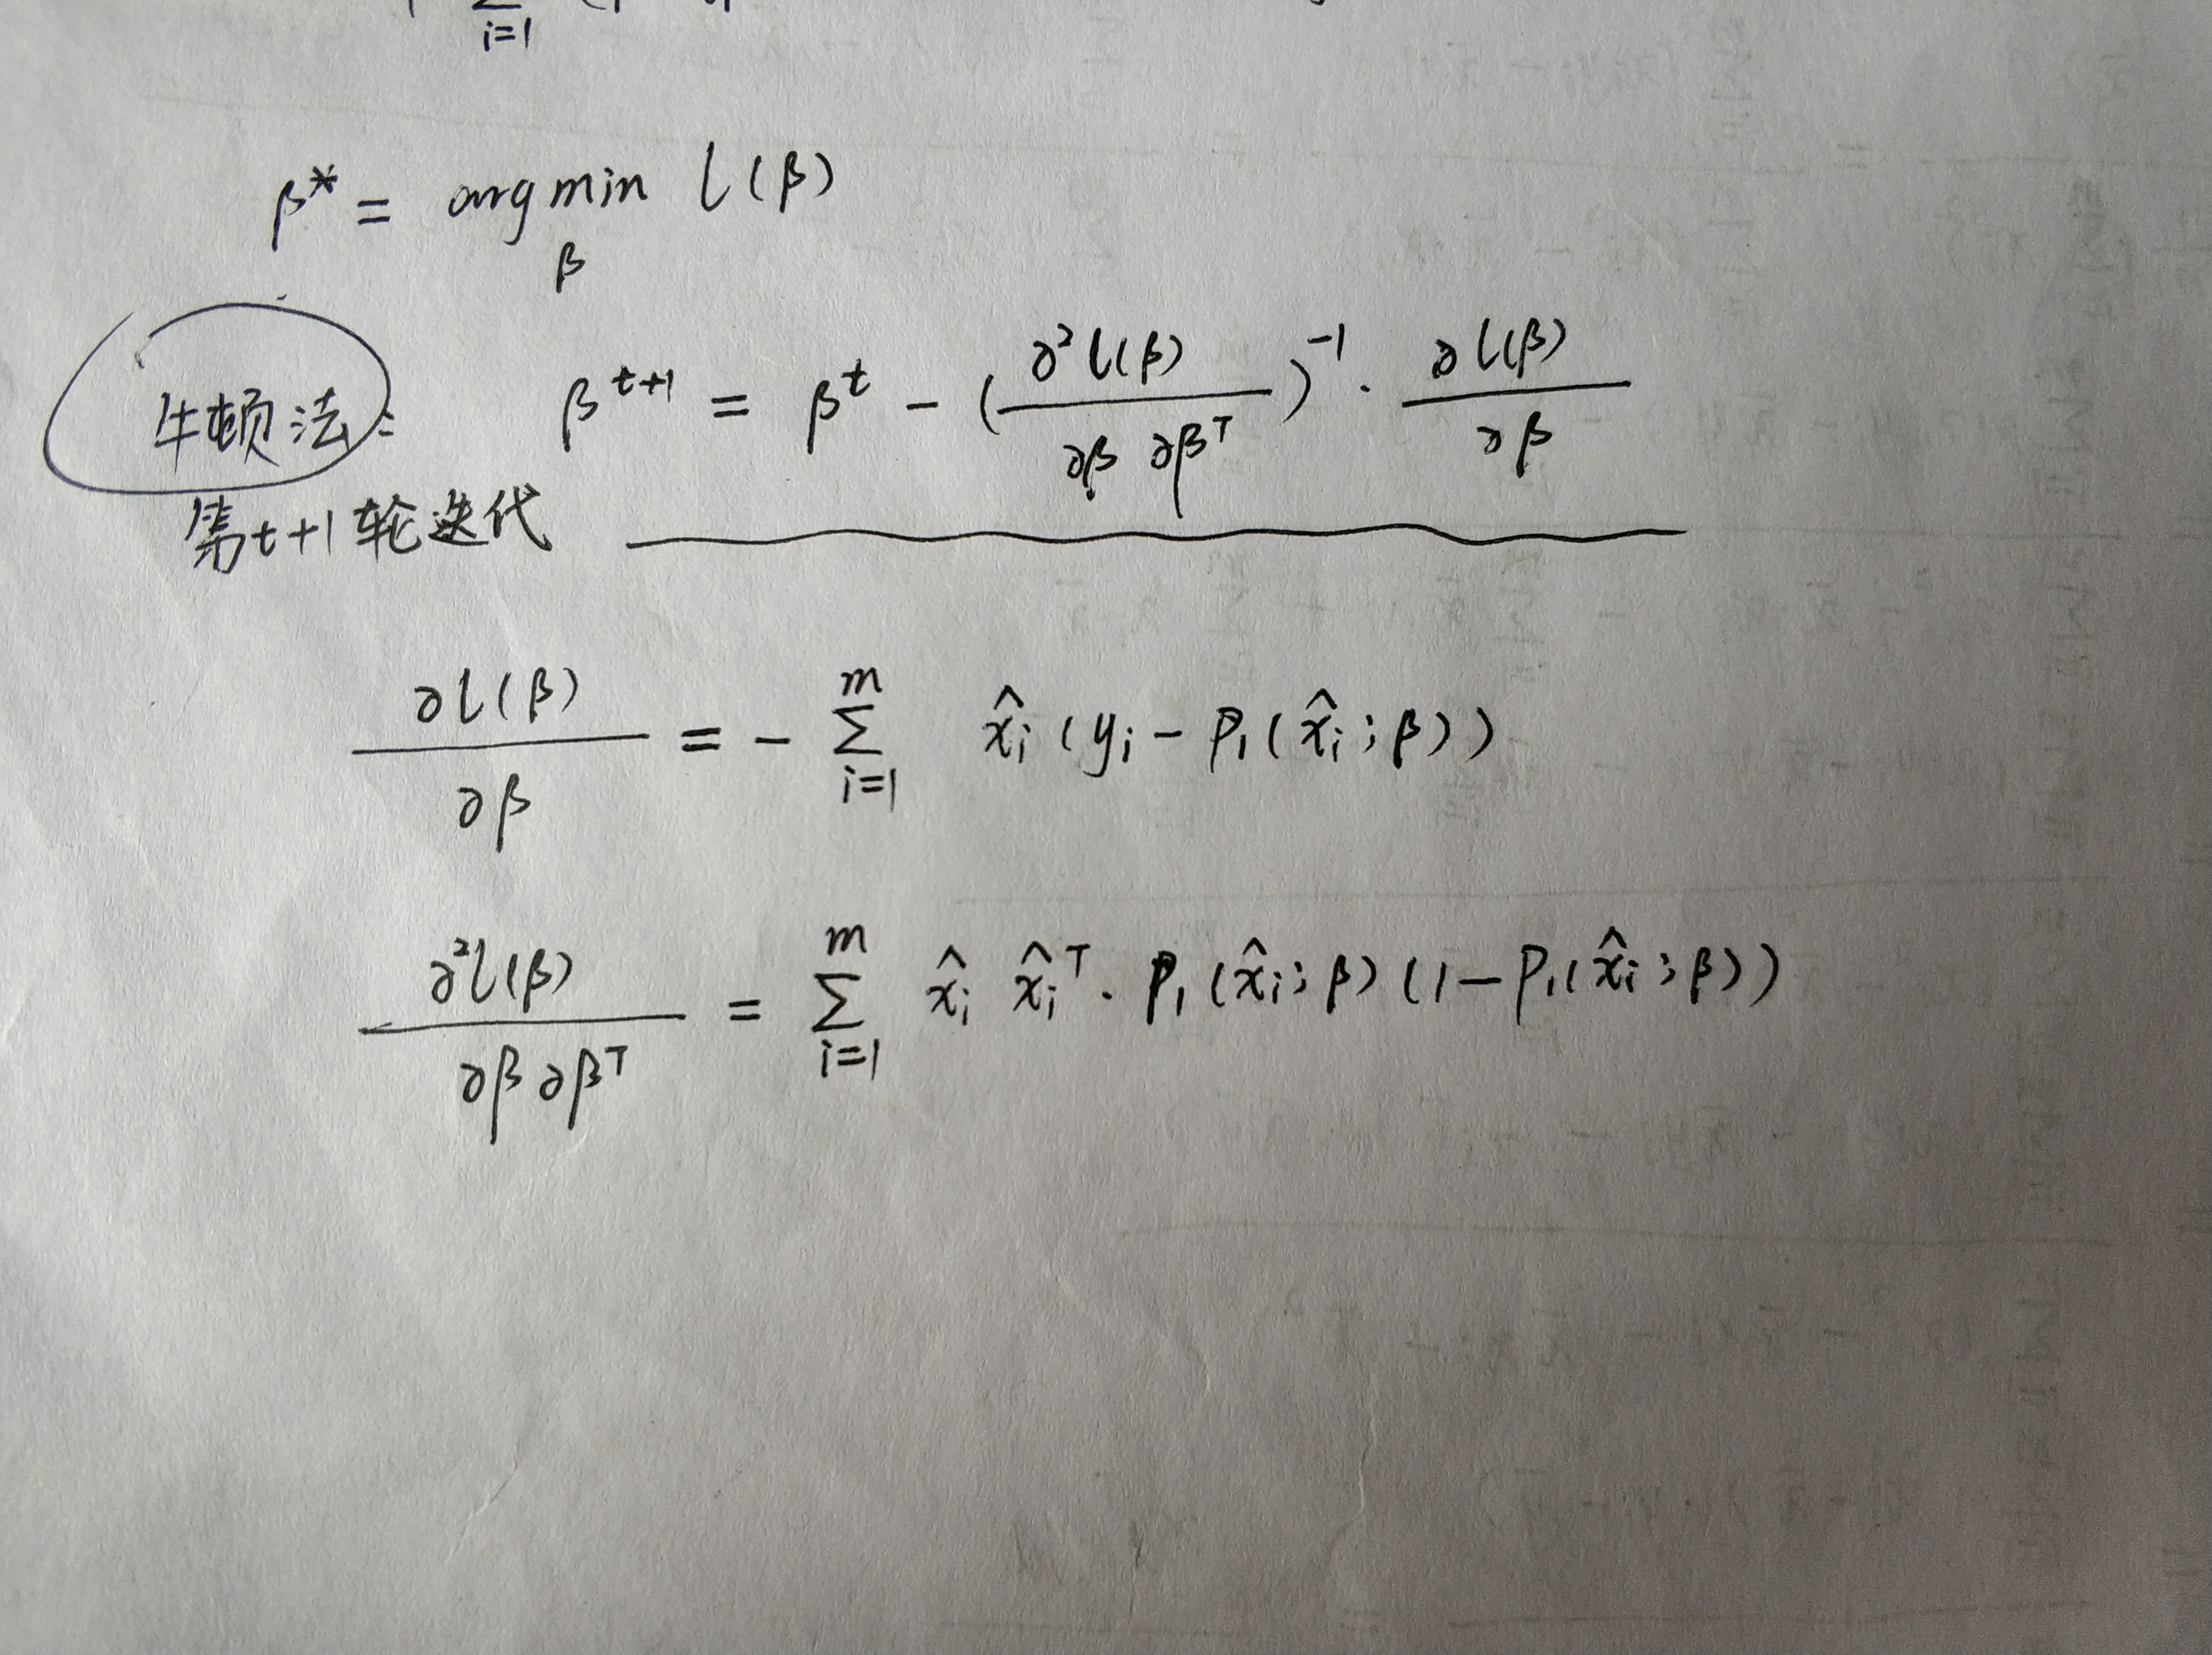 i=1
β* = arg min l(β)
β
牛顿法: β^{t+1} = β^t - (∂²l(β) / ∂β ∂β^T)^{-1} · ∂l(β) / ∂β
第t+1轮迭代
∂l(β) / ∂β = - Σ_{i=1}^{m} x̂_i (y_i - P_1(x̂_i; β))
∂²l(β) / ∂β ∂β^T = Σ_{i=1}^{m} x̂_i x̂_i^T · P_1(x̂_i; β)(1 - P_1(x̂_i; β))